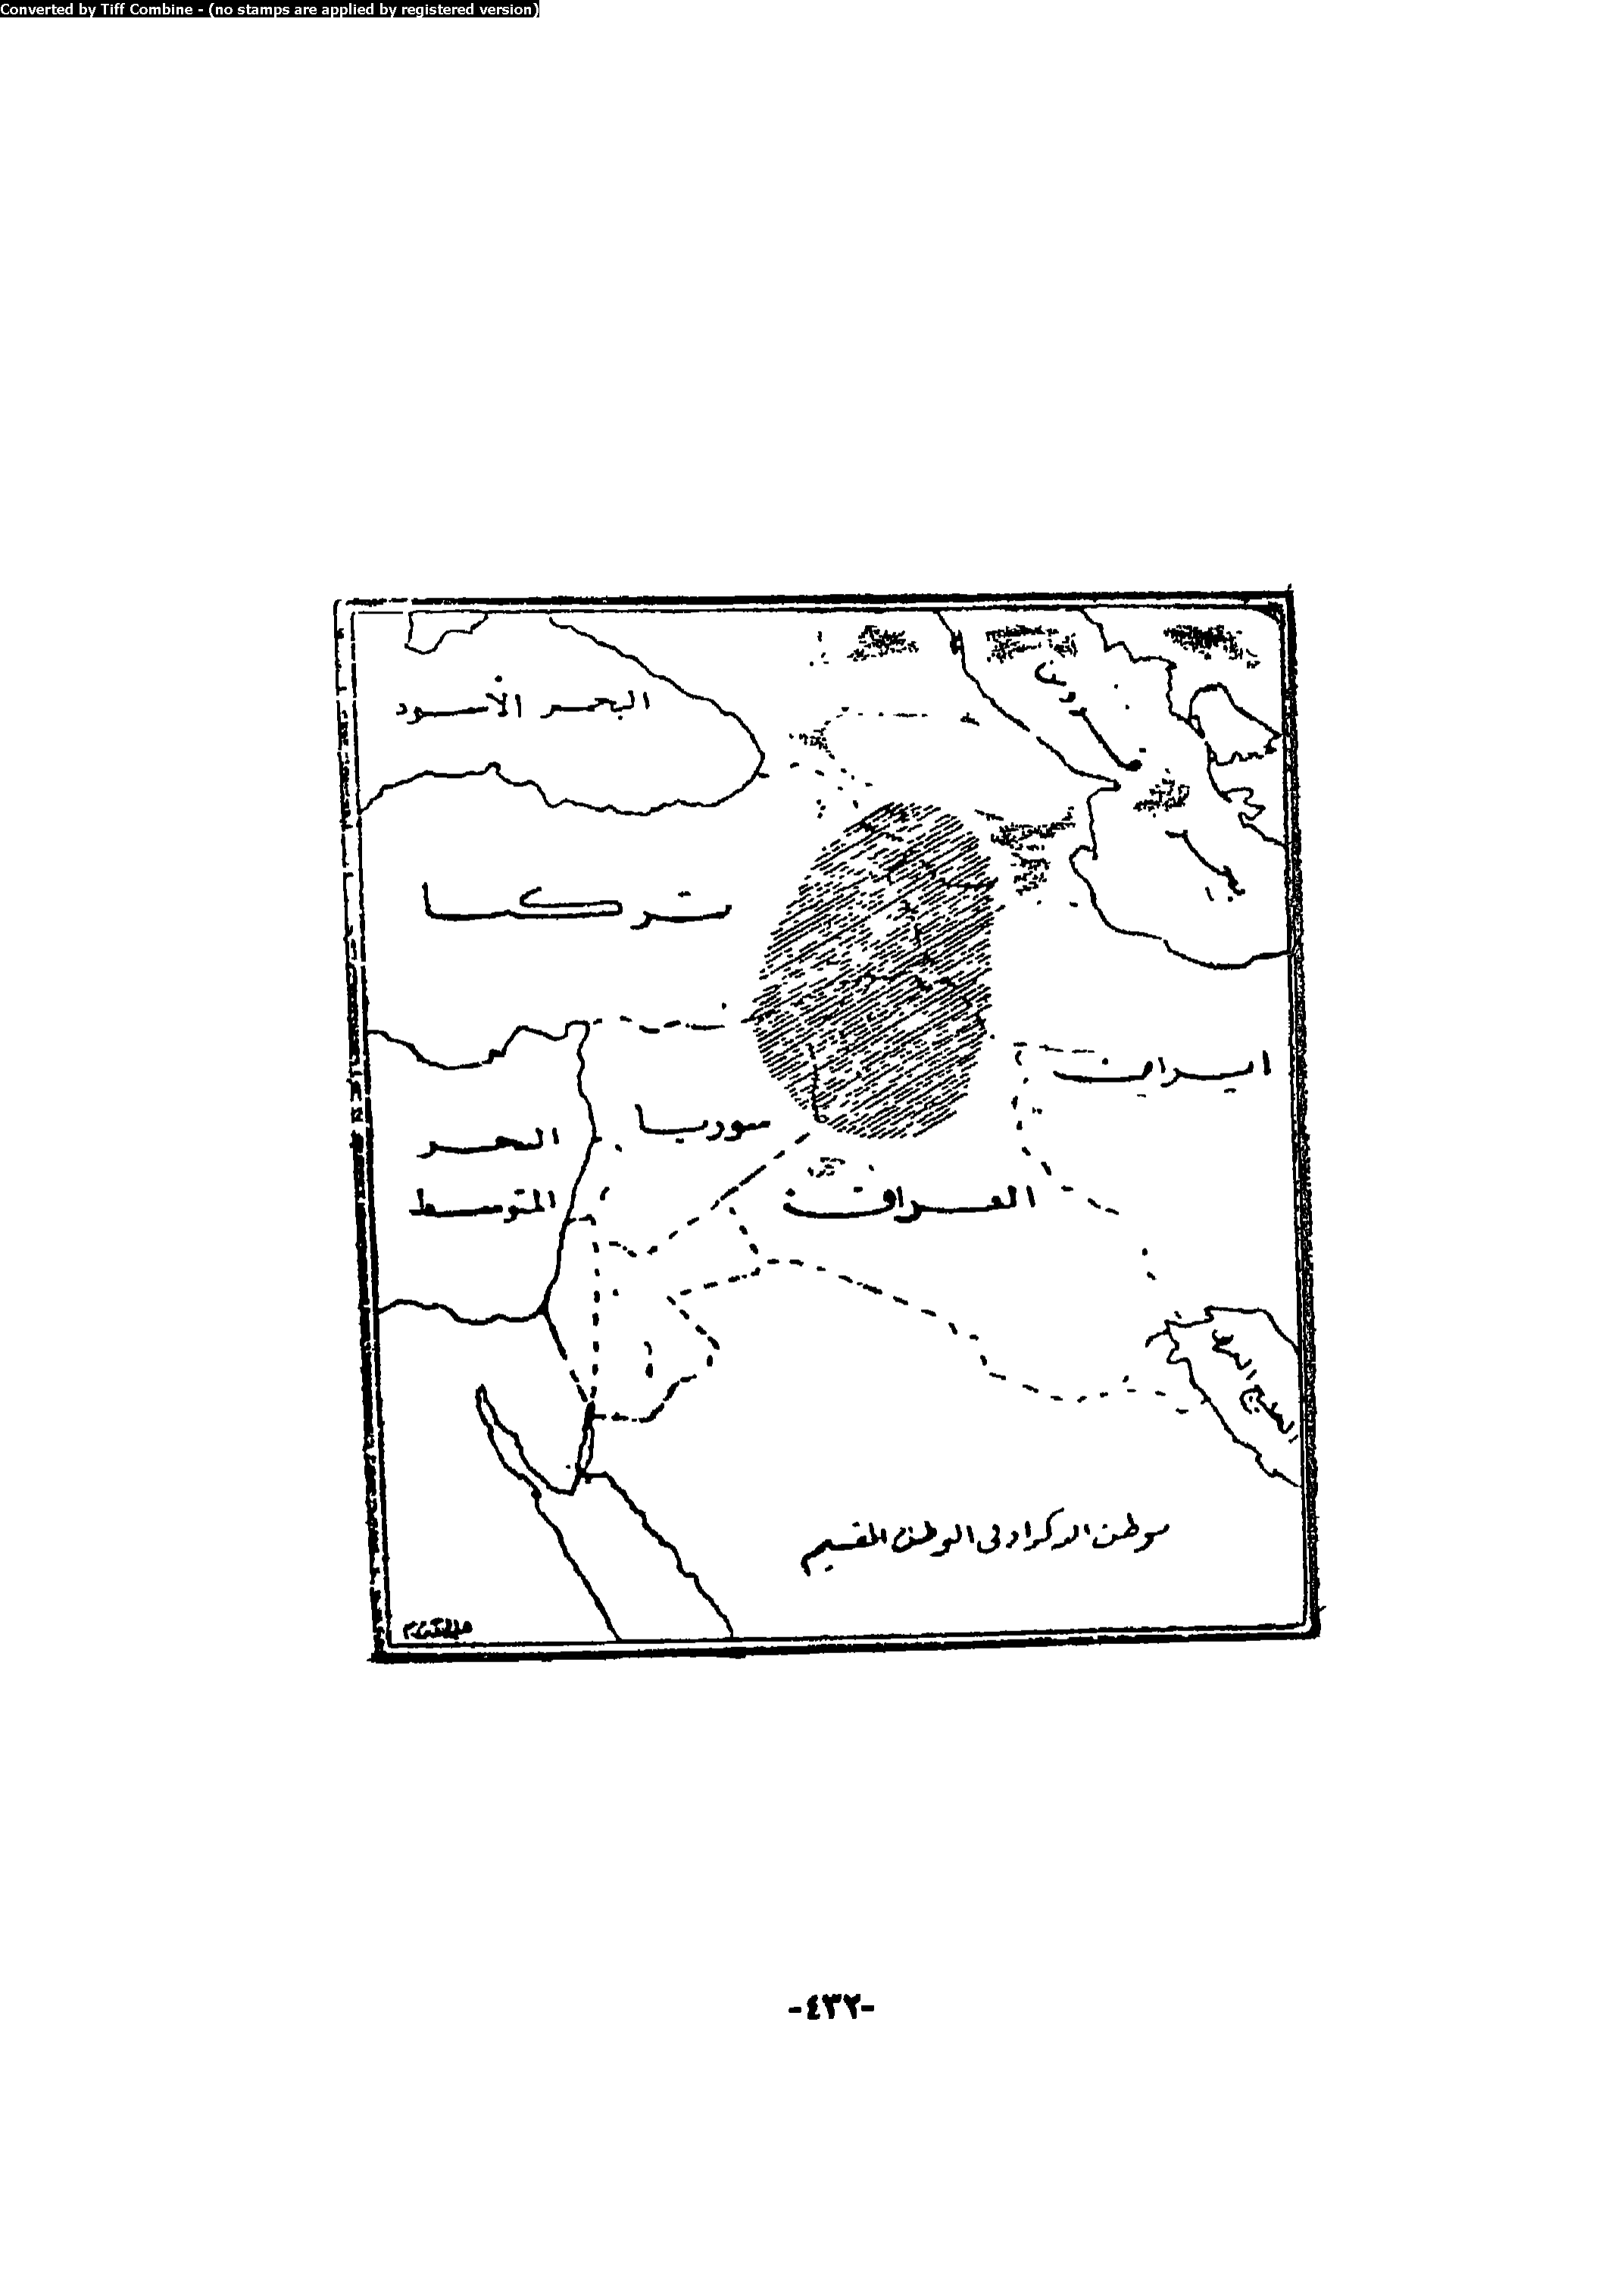 Converted by Tiff Combine - (no stamps are applied by registered version)
البحر الأسود
بحر
قزوين
تركيا
ايران
سوريا
البحر
المتوسط
العراق
الخليج
موطن الاكراد في الوطن القسيم
-٤٣٢-